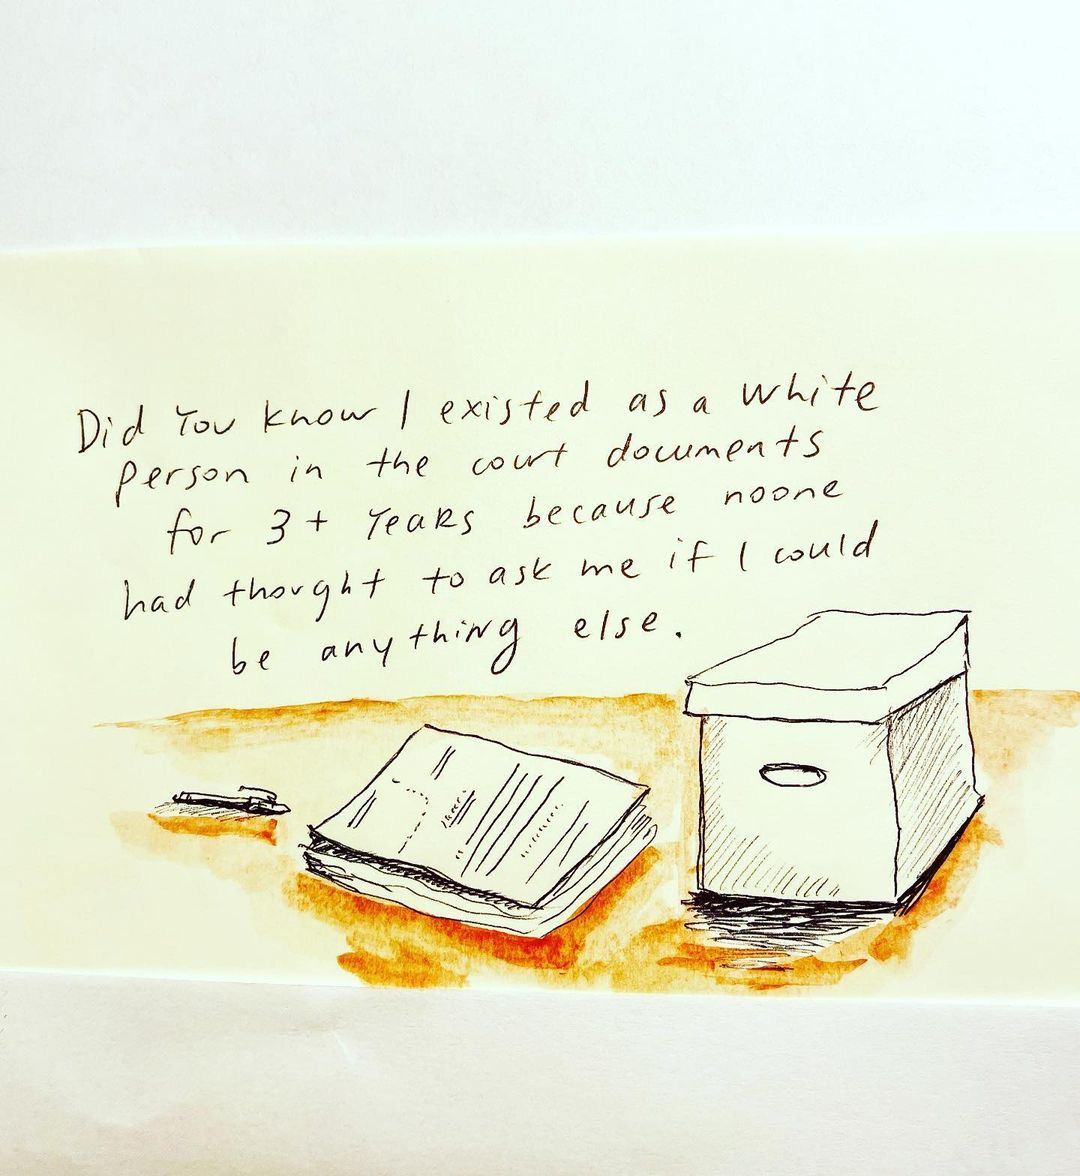 Did You know I existed as a white
person in the court documents
for 3+ Years because noone
had thought to ask me if I could
be anything else.